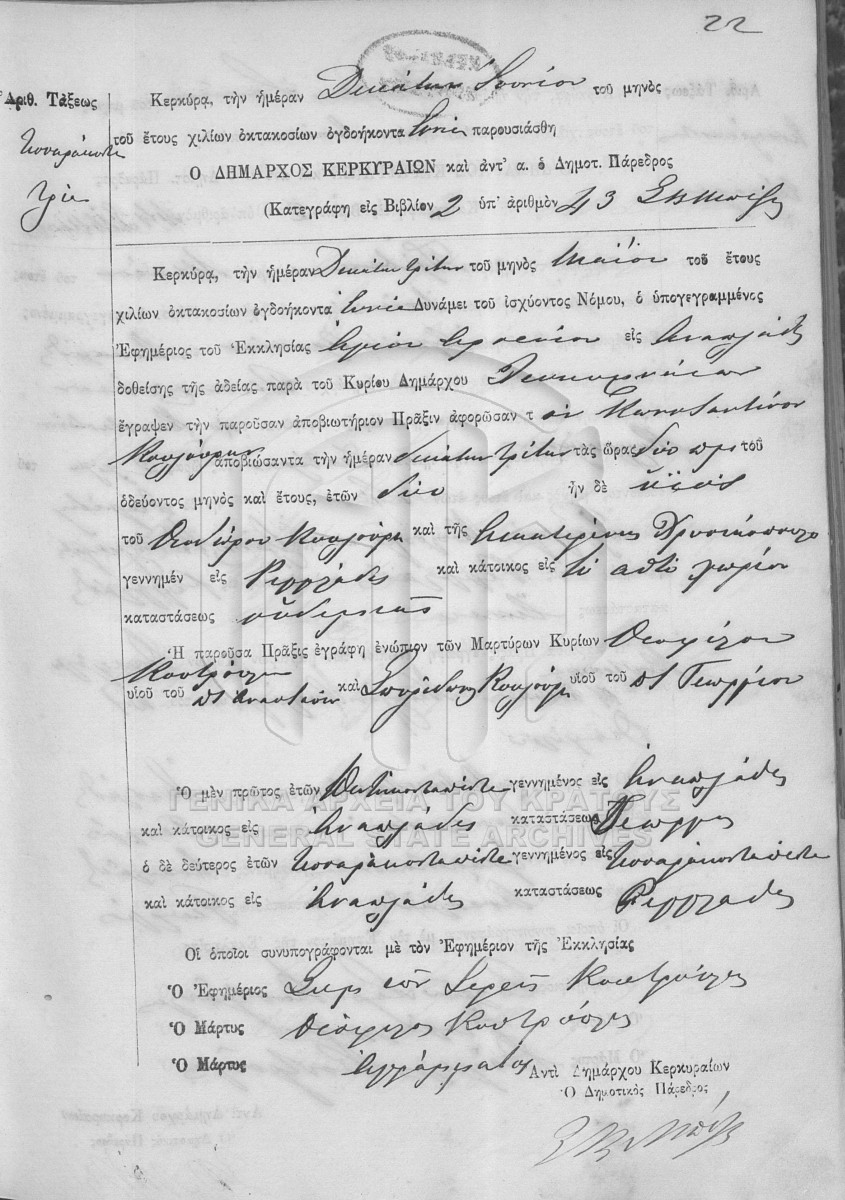 22
Ἀριθ. Τάξεως
τρία
Κερκύρα, τὴν ἡμέραν Δεκάτην Ἰουνίου τοῦ μηνὸς
τοῦ ἔτους χιλίων ὀκτακοσίων ὀγδοήκοντα ἐννέα παρουσιάσθη
Ὁ ΔΗΜΑΡΧΟΣ ΚΕΡΚΥΡΑΙΩΝ καὶ ἀντ' α. ὁ Δημοτ. Πάρεδρος
(Κατεγράφη εἰς Βιβλίον 2 ὑπ' ἀριθμὸν 43
Κερκύρα, τὴν ἡμέραν Δεκάτην τρίτην τοῦ μηνὸς Μαΐου τοῦ ἔτους
χιλίων ὀκτακοσίων ὀγδοήκοντα ἐννέα Δυνάμει τοῦ ἰσχύοντος Νόμου, ὁ ὑπογεγραμμένος
Ἐφημέριος τοῦ Ἐκκλησίας Ἁγίου Ἀρσενίου εἰς Ἀναπλάδες
δοθείσης τῆς ἀδείας παρὰ τοῦ Κυρίου Δημάρχου
ἔγραψεν τὴν παροῦσαν ἀποβιωτήριον Πρᾶξιν ἀφορῶσαν τ ὸν Κωνσταντῖνον
Κουλούρην ἀποβιώσαντα τὴν ἡμέραν δεκάτην τρίτην τὰς ὥρας δύο π μ τοῦ
ὁδεύοντος μηνὸς καὶ ἔτους, ἐτῶν δύο ἦν δὲ υἱὸς
τοῦ Θεοδώρου Κουλούρη καὶ τῆς Αἰκατερίνης Χρυσικοπούλο
γεννημέν εἰς Ρεγγλάδες καὶ κάτοικος εἰς τὸ αὐτὸ χωρίον
καταστάσεως οὐδεμιᾶς
Ἡ παροῦσα Πρᾶξις ἐγράφη ἐνώπιον τῶν Μαρτύρων Κυρίων Θεοφίλου
υἱοῦ τοῦ καὶ Σπυρίδωνος Κουλούρη υἱοῦ τοῦ Γεωργίου
Ὁ μὲν πρῶτος ἐτῶν γεννημένος εἰς Ἀναπλάδες
καὶ κάτοικος εἰς Ἀναπλάδες καταστάσεως Γεωργὸς
ὁ δὲ δεύτερος ἐτῶν τεσσαράκοντα πέντε γεννημένος εἰς τεσσαράκοντα πέντε
καὶ κάτοικος εἰς Ἀναπλάδες καταστάσεως Ρεγγλάδες
Οἱ ὁποῖοι συνυπογράφονται μὲ τὸν Ἐφημέριον τῆς Ἐκκλησίας
Ὁ Ἐφημέριος
Ὁ Μάρτυς Θεόφιλος
Ὁ Μάρτυς ἀγράμματος
Ἀντὶ Δημάρχου Κερκυραίων
Ὁ Δημοτικὸς Πάρεδρος
ΓΕΝΙΚΑ ΑΡΧΕΙΑ ΤΟΥ ΚΡΑΤΟΥΣ
GENERAL STATE ARCHIVES